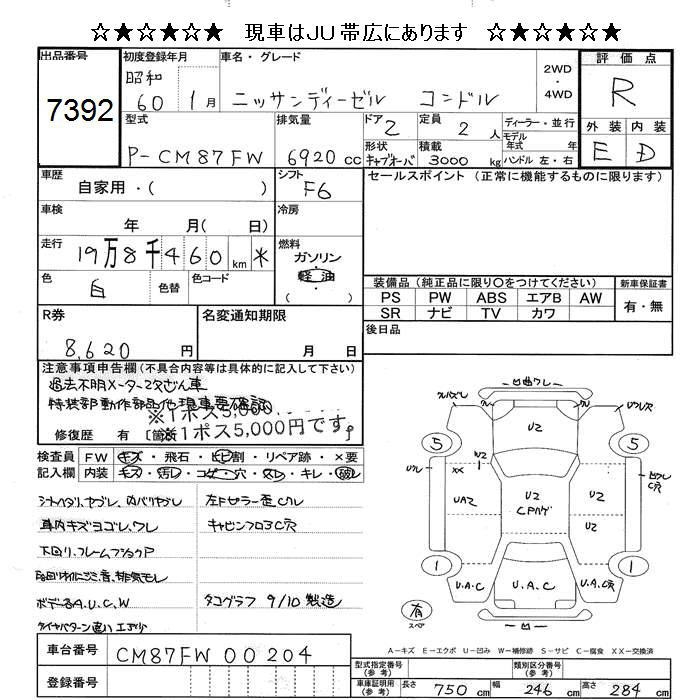 ☆★☆★☆★ 現車はJU帯広にあります ☆★☆★☆★
出品番号 初度登録年月 車名・グレード 2WD ・ 4WD 評価点
7392 昭和 60 1月 ニッサンディーゼル コンドル R
型式 排気量 ドア 2 定員 2 人 ディーラー・並行 外装 内装
P-CM87FW 6920 cc 形状 キャブオーバ 積載 3000 kg モデル年式 年 ハンドル 左・右 E D
車歴 自家用・( ) シフト F6 セールスポイント (正常に機能するものに限ります)
車検 年 月( 日) 冷房
走行 19万8千460 km * 燃料 ガソリン
軽油
( )
色 白 色替 色コード
装備品 (純正品に限り○をつけてください) 新車保証書
PS PW ABS エアB AW 有・無
SR ナビ TV カワ
R券 8,620 円 名変通知期限 月 日 後日品
注意事項申告欄 (不具合内容等は具体的に記入して下さい)
過去不明メーター2改ざん車
特装部動作部品他現車要確認
※1ポス5,000
※1ポス5,000円です
修復歴 有
検査員 FW キズ・飛石・ヒビ割・リペア跡・×要
記入欄 内装 キズ・汚レ・コゲ・穴・スレ・キレ・破レ
シートヘタリ、ヤブレ、
車内キズヨゴレ、ワレ キャビンフロア3C穴
下回り、フレーム
ボデー各A.U.C.W タコグラフ 9/10 製造
凹曲ワレ
U2
5 5
XX U2
UA2 U2 U2
CPハゲ
凹フレ C穴
1 1
U.A.C U.A.C U.A.C穴
有
スペア
凹
A-キズ E-エクボ U-凹み W-補修跡 S-サビ C-腐食 XX-交換済
車台番号 CM87FW 00204
登録番号
型式指定番号 (参考) 類別区分番号 (参考)
車庫証明用 (参考) 長さ 750 cm 幅 246 cm 高さ 284 cm